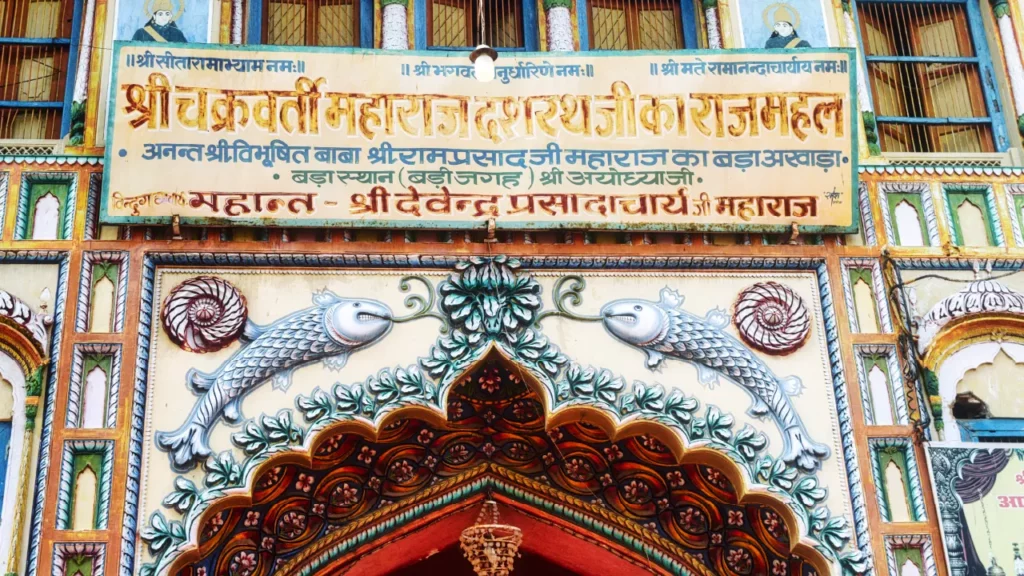 ॥श्री सीतारामाभ्याम नमः॥ ॥श्री भगवते धनुर्धारिणे नमः॥ ॥श्री मते रामानन्दाचार्याय नमः॥
श्री चक्रवर्ती महाराज दशरथ जी का राजमहल
• अनन्त श्री विभूषित बाबा श्री रामप्रसाद जी महाराज का बड़ा अखाड़ा •
• बड़ा स्थान (बड़ी जगह) श्री अयोध्या जी •
महान्त - श्री देवेन्द्र प्रसादाचार्य जी महाराज